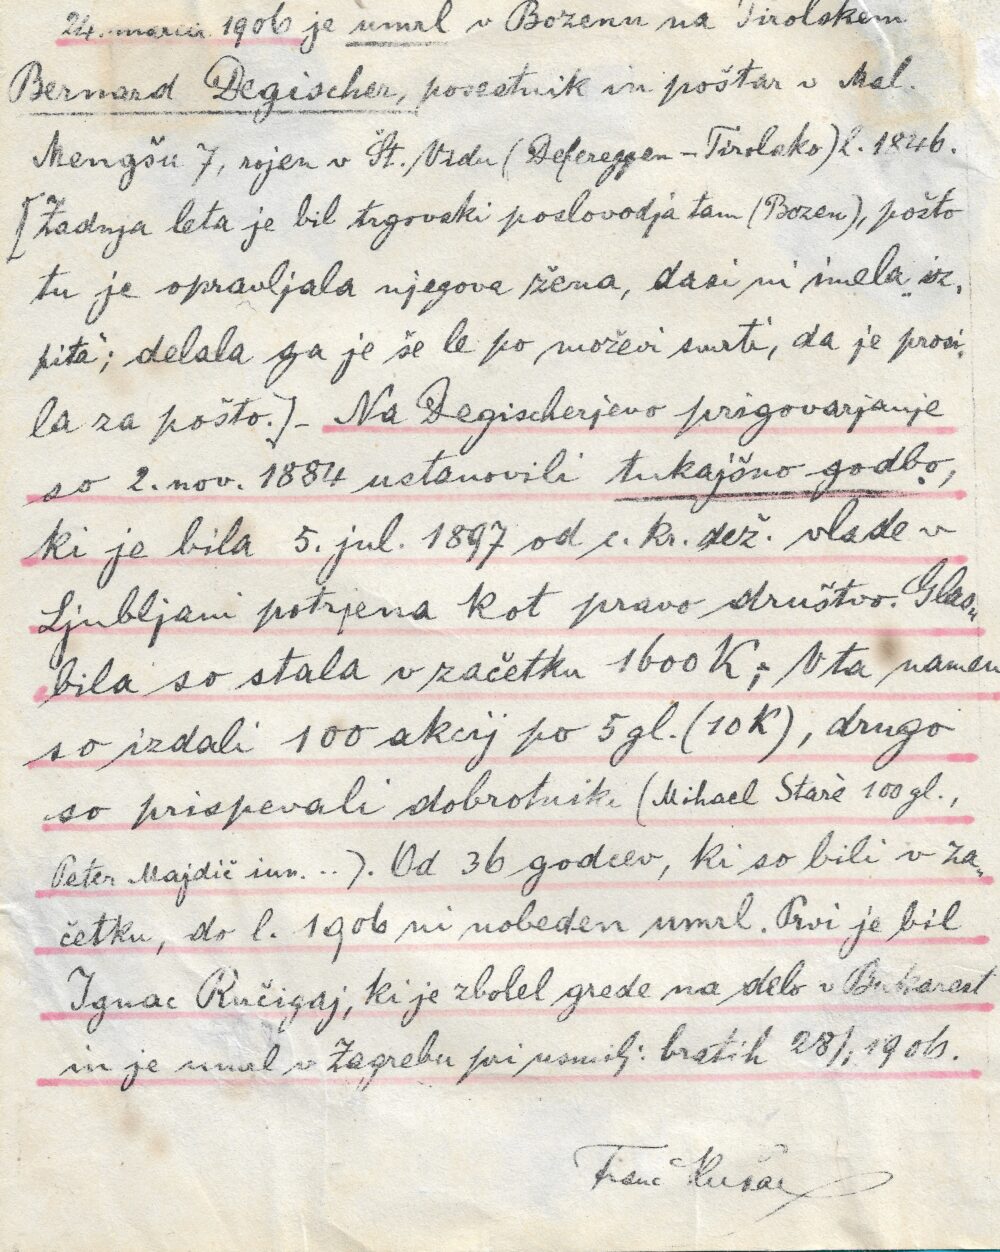 24. marca 1906 je umrl v Bozenu na Tirolskem
Bernard Degischer, posestnik in poštar v Mal.
Mengšu 7, rojen v Št. Vidu (Defereggen – Tirolsko) l. 1846.
[Zadnja leta je bil trgovski poslovodja tam (Bozen), pošto
tu je opravljala njegova žena, dasi ni imela „iz-
pita“; delala ga je še le po moževi smrti, da je prosi-
la za pošto.] – Na Degischerjevo prigovarjanje
so 2. nov. 1884 ustanovili tukajšno godbo,
ki je bila 5. jul. 1897 od c. kr. dež. vlade v
Ljubljani potrjena kot pravo društvo. Glas-
bila so stala v začetku 1600 K; V ta namen
so izdali 100 akcij po 5 gl. (10 K), drugo
so prispevali dobrotniki (Mihael Starè 100 gl.,
Peter Majdič iun. ...). Od 36 godcev, ki so bili v za-
četku, do l. 1906 ni nobeden umrl. Prvi je bil
Ignac Ručigaj, ki je zbolel grede na delo v Bukarest
in je umrl v Zagrebu pri usmilj: bratih 28/, 1906.
Franc